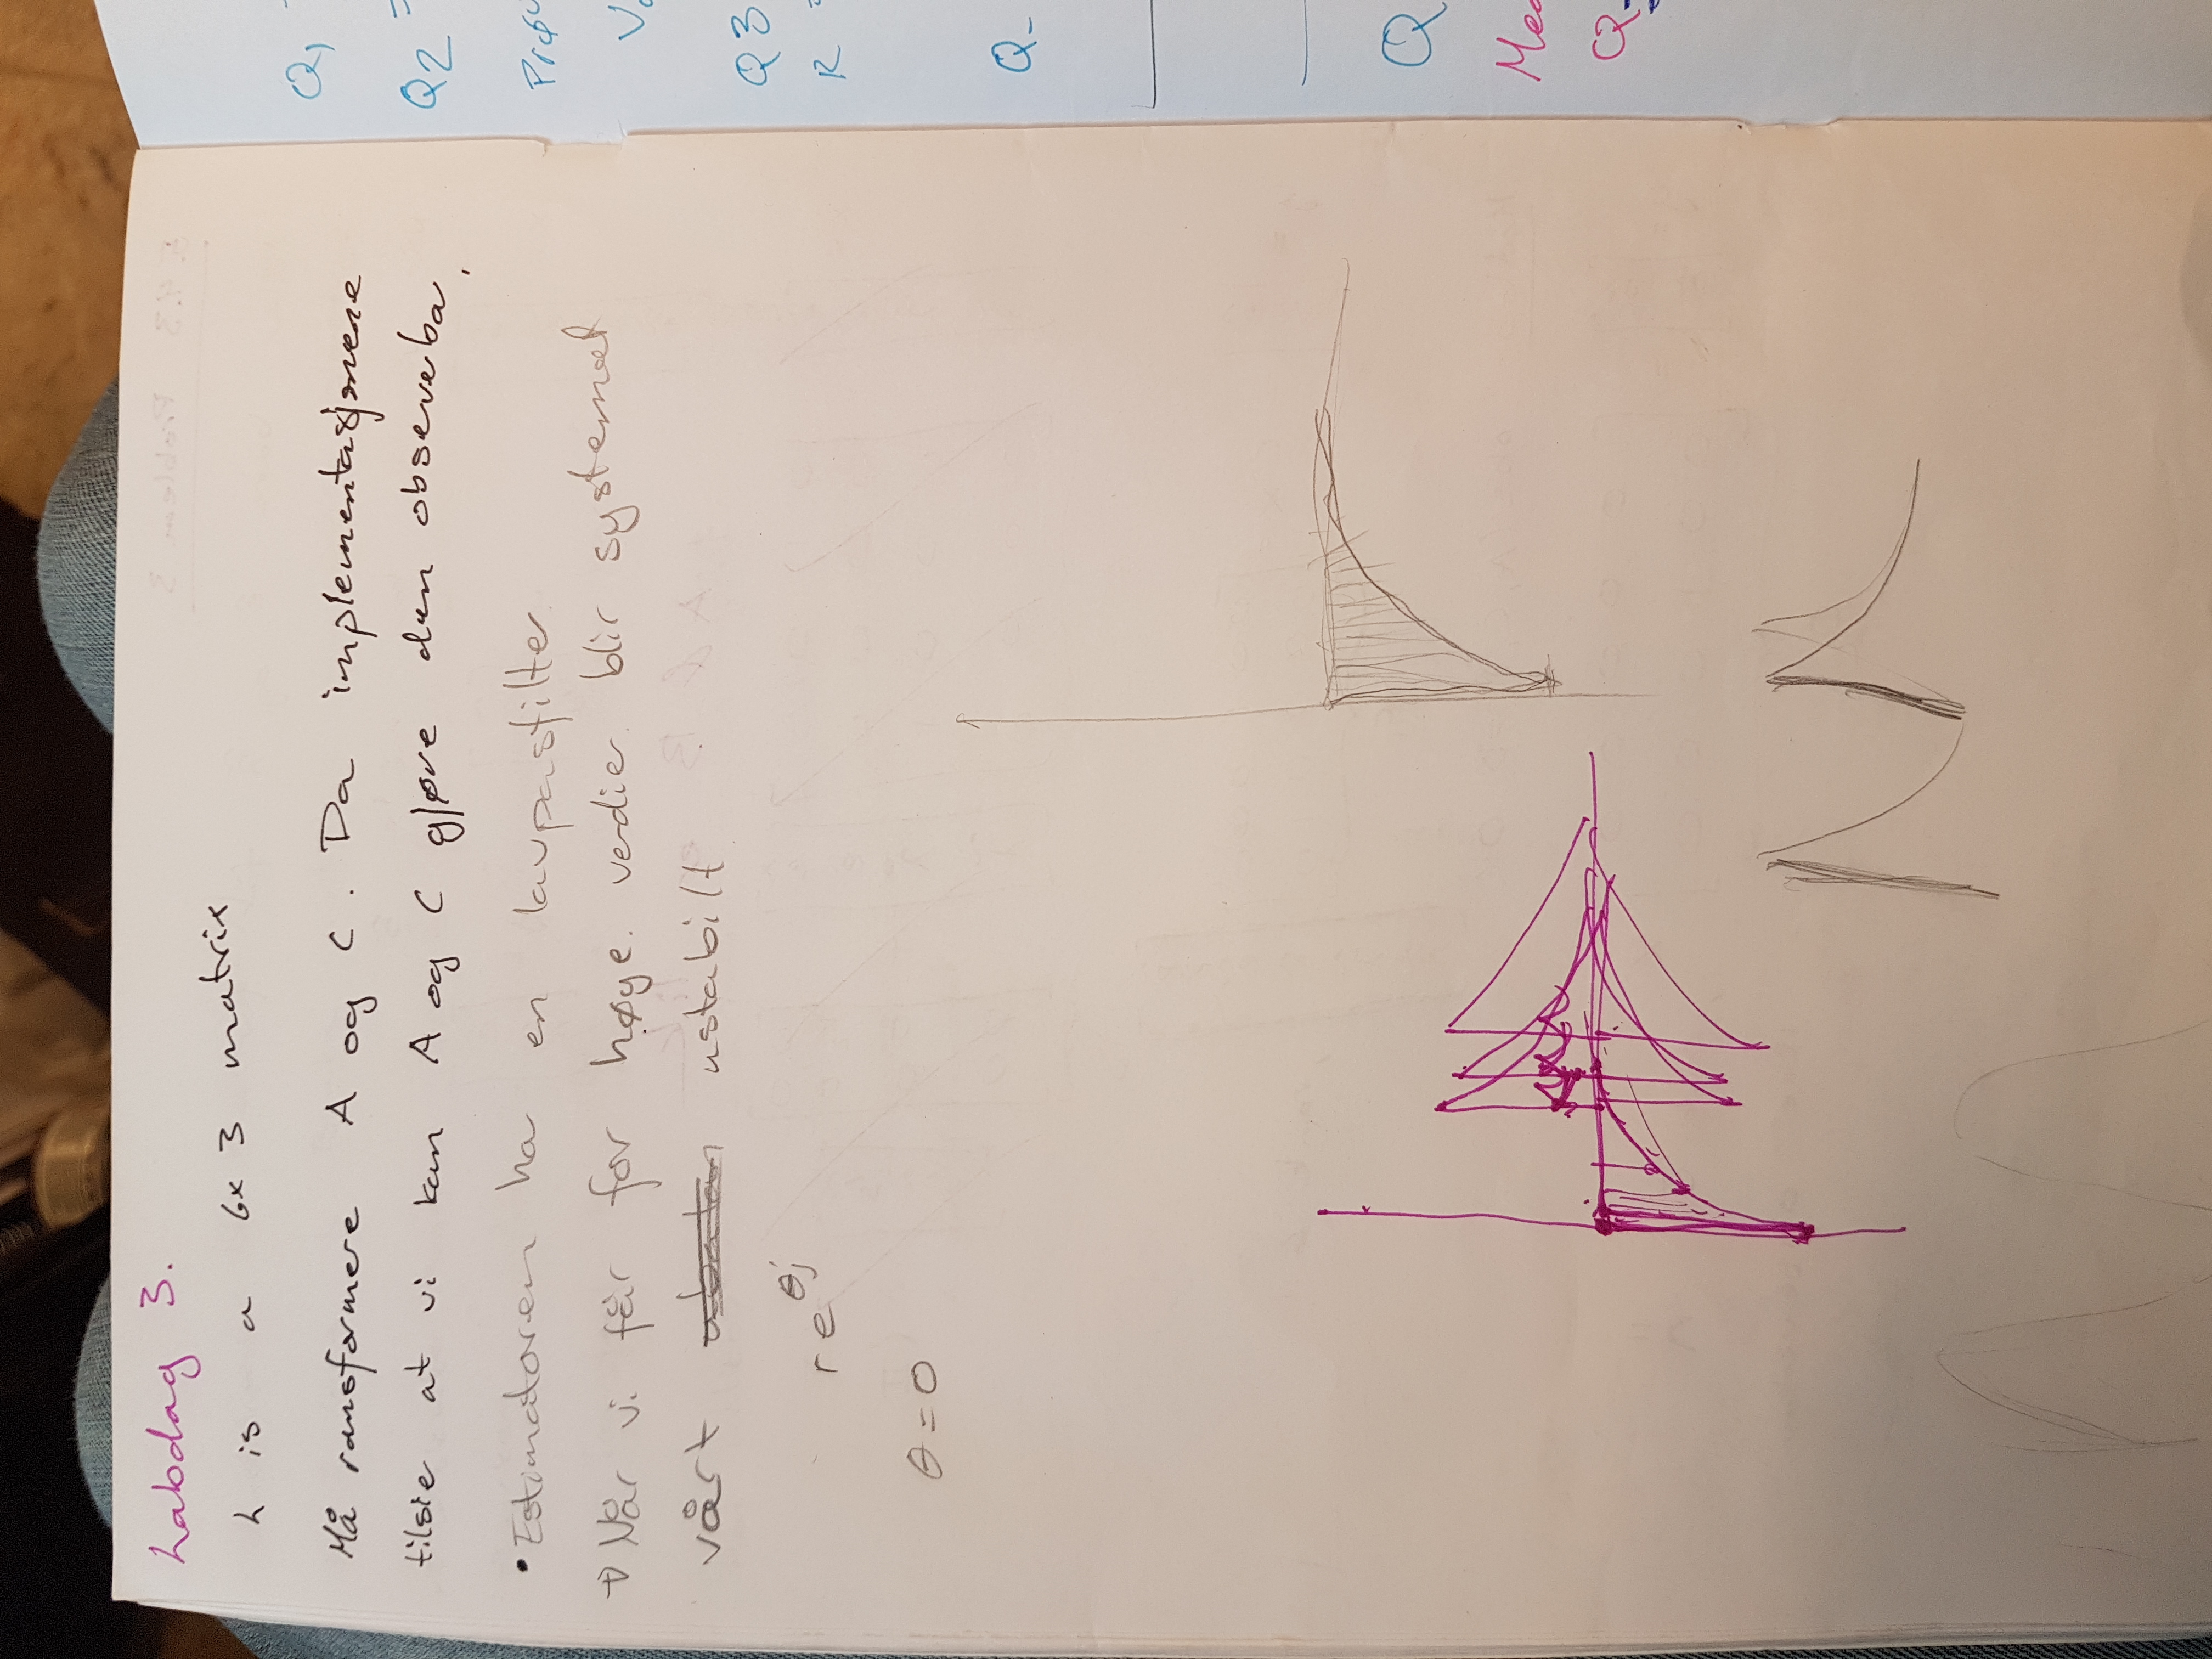 Labdag 3.
L is a 6x3 matrix
Må ransformere A og C. Da implementasjonene
tilsie at vi kan A og C gjøre den observerba,
• Estimatoren har en lavpassfilter.
→ Når vi får for høye. verdier. blir systemet
vårt ustabilt
re^θj
θ=0
Q1
Q2 =
Prøv
Va
Q3
R =
Q-
Q
Med
Q=